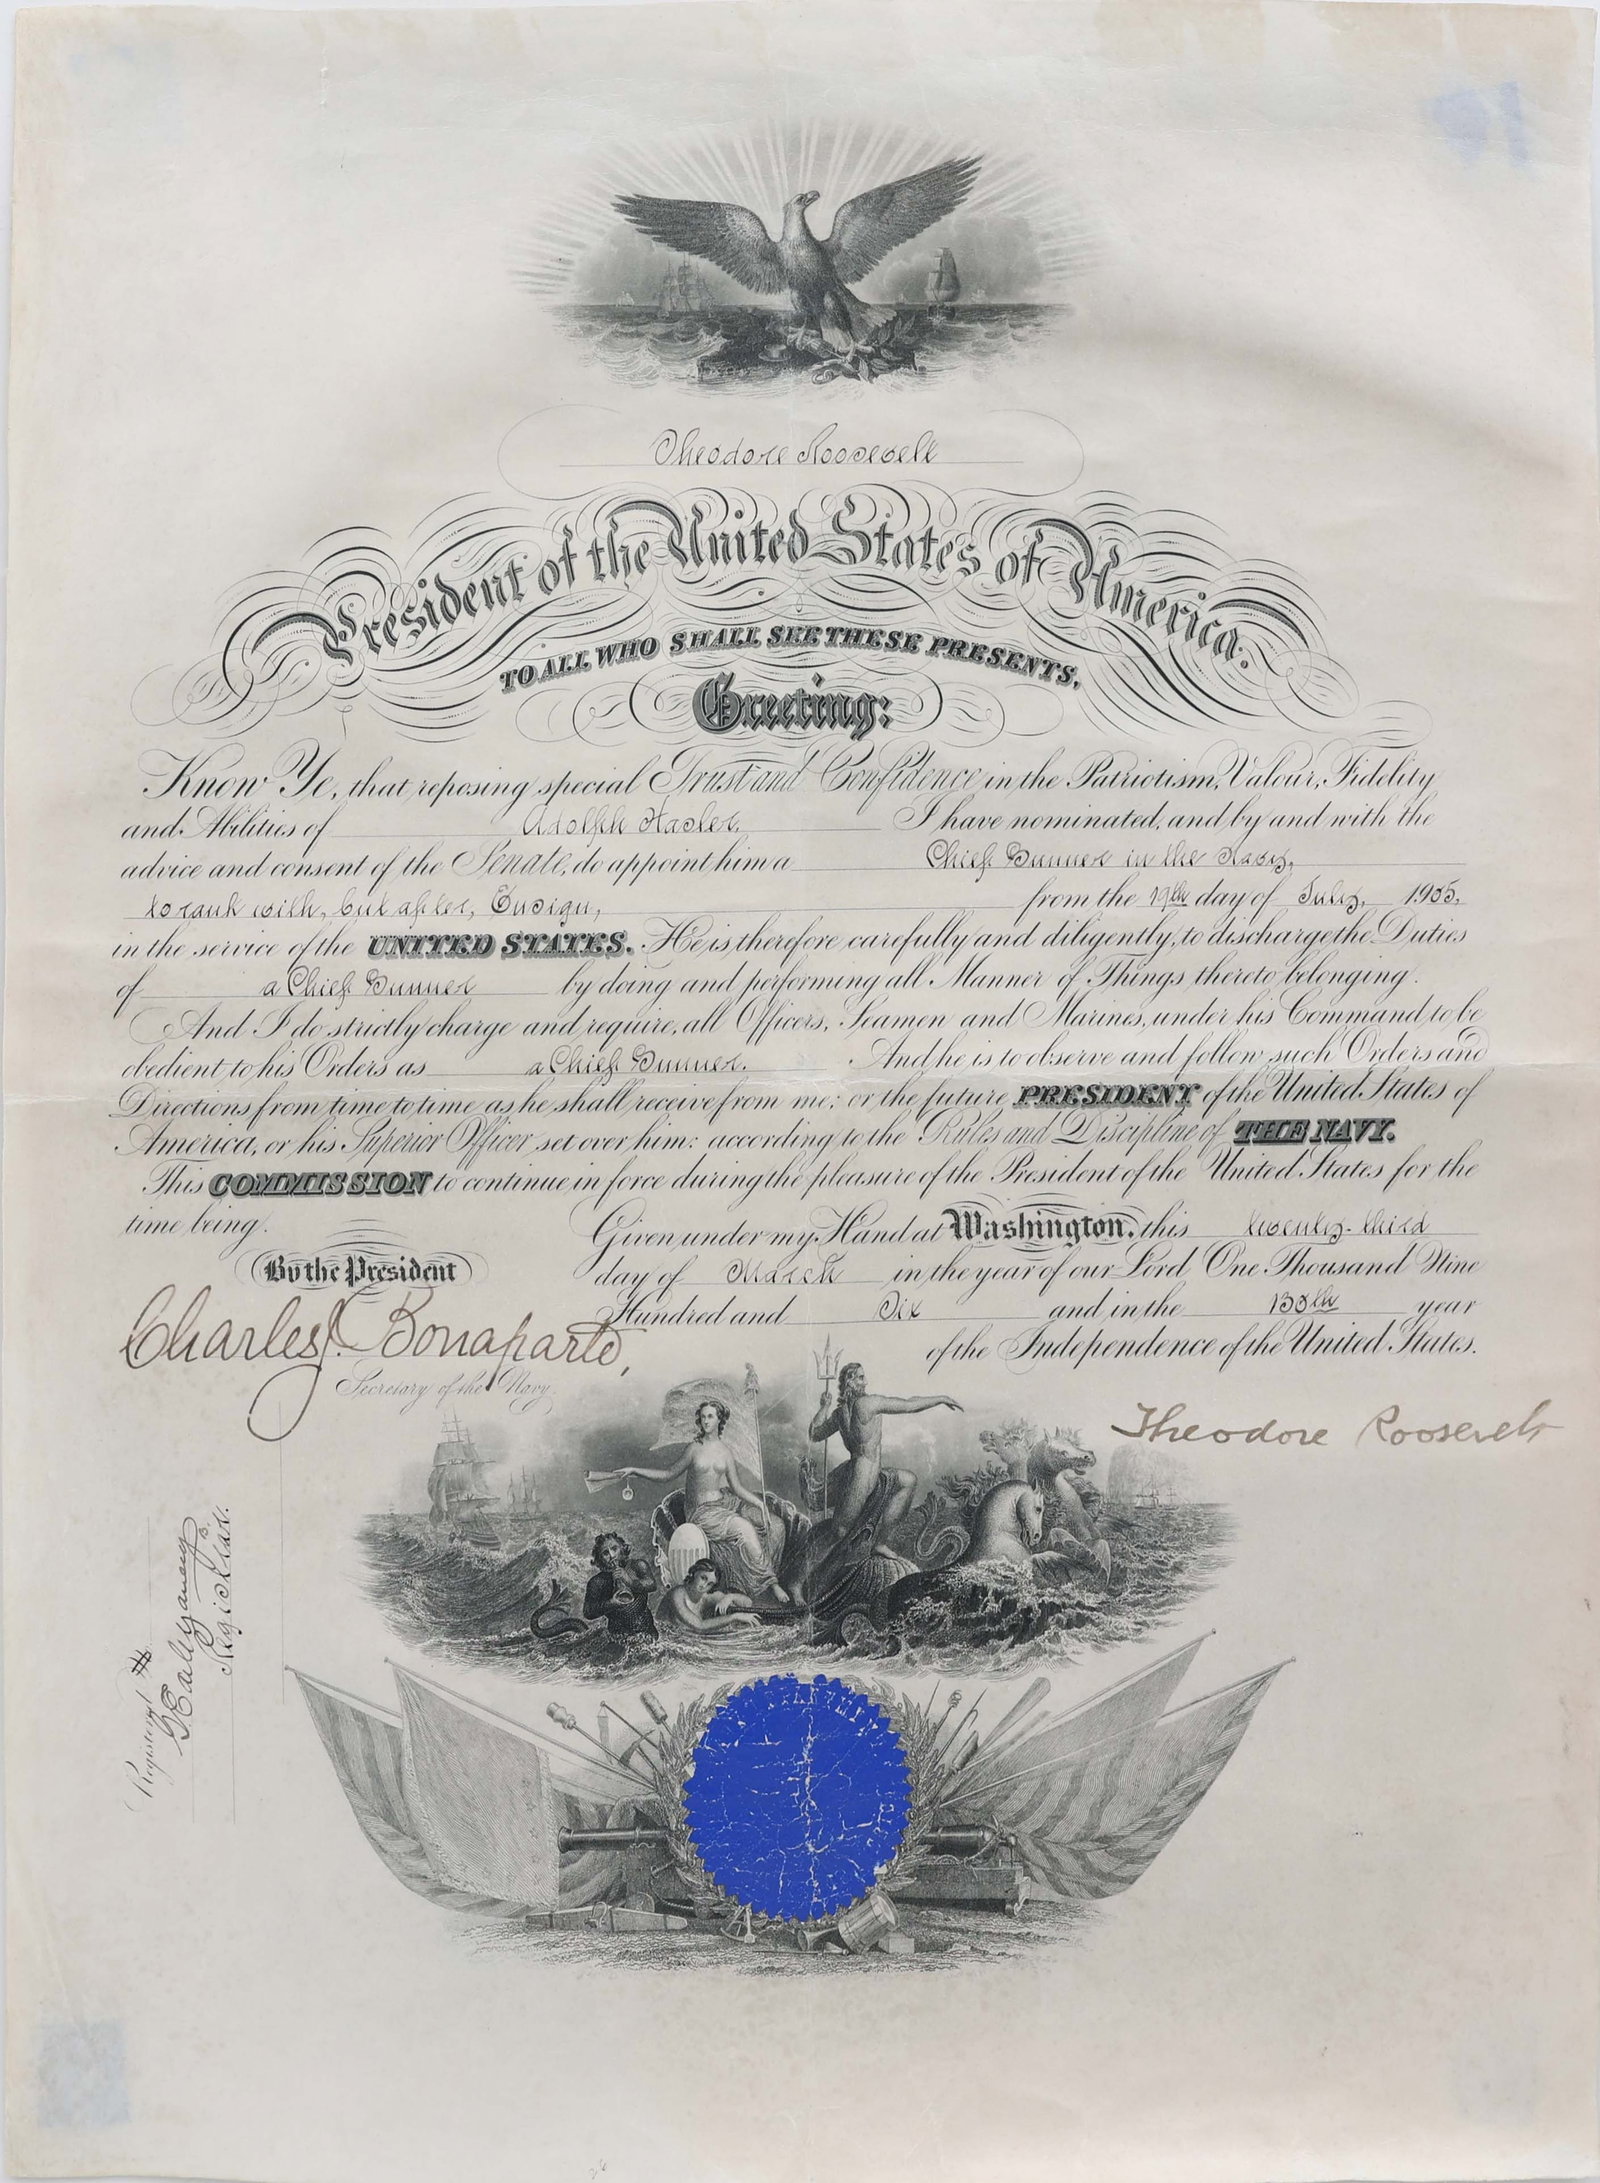 Theodore Roosevelt
President of the United States of America.
TO ALL WHO SHALL SEE THESE PRESENTS,
Greeting:
Know Ye, that reposing special Trust and Confidence in the Patriotism, Valour, Fidelity
and Abilities of Adolph Hasler, I have nominated, and by and with the
advice and consent of the Senate, do appoint him a Chief Gunner in the Navy,
to rank with, but after, Ensign, from the 19th day of July, 1905,
in the service of the UNITED STATES. He is therefore carefully and diligently, to discharge the Duties
of a Chief Gunner by doing and performing all Manner of Things thereto belonging.
And I do strictly charge and require, all Officers, Seamen and Marines, under his Command to be
obedient to his Orders as a Chief Gunner. And he is to observe and follow such Orders and
Directions from time to time as he shall receive from me; or the future PRESIDENT of the United States of
America, or his Superior Officer set over him: according to the Rules and Discipline of THE NAVY.
This COMMISSION to continue in force during the pleasure of the President of the United States for the
time being.
Given under my Hand at Washington, this twenty-third
By the President
day of March in the year of our Lord One Thousand Nine
Hundred and Six and in the 130th year
Charles J. Bonaparte,
of the Independence of the United States.
Secretary of the Navy.
Theodore Roosevelt
Registered
Register.